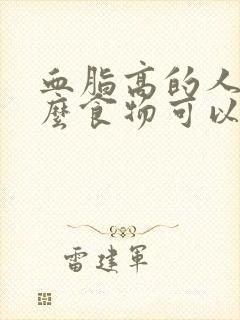 血脂高的人
麼食物可以
雷建軍